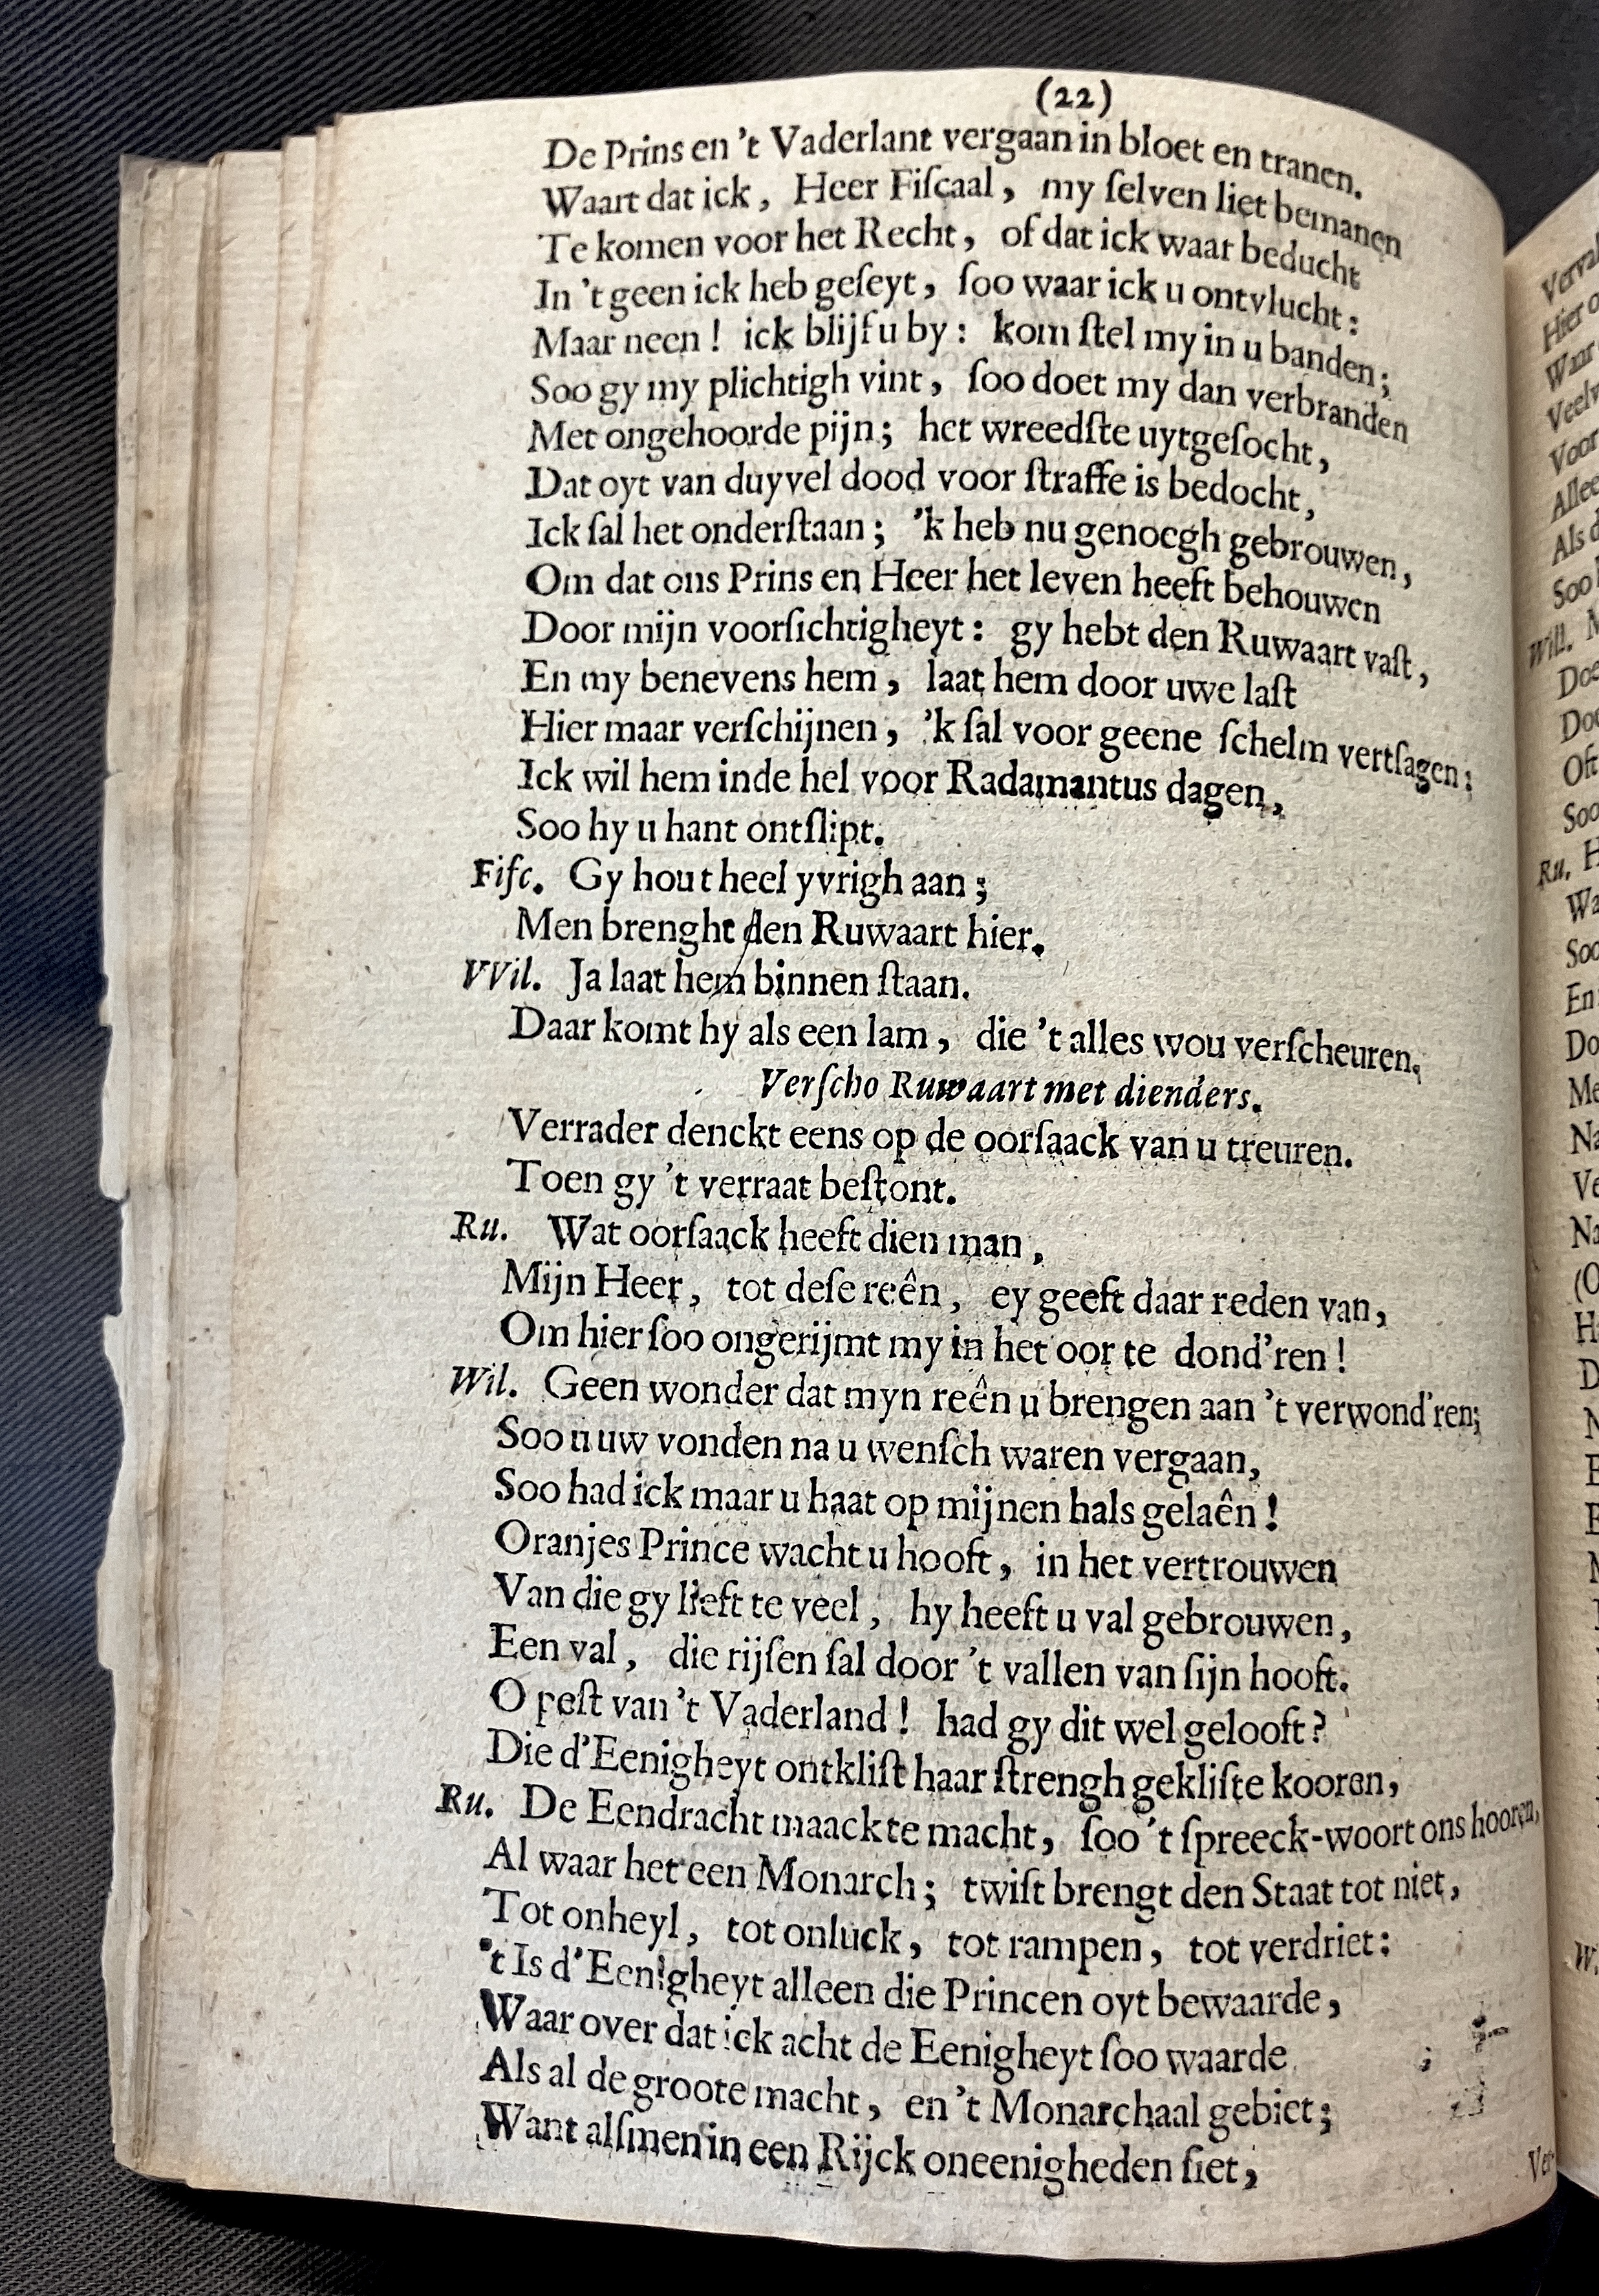 (22)
De Prins en 't Vaderlant vergaan in bloet en tranen.
Waart dat ick, Heer Fiſcaal, my ſelven liet bemanen
Te komen voor het Recht, of dat ick waar beducht
In 't geen ick heb geſeyt, ſoo waar ick u ontvlucht:
Maar neen! ick blijf u by: kom ſtel my in u banden;
Soo gy my plichtigh vint, ſoo doet my dan verbranden
Met ongehoorde pijn; het wreedſte uytgeſocht,
Dat oyt van duyvel dood voor ſtraffe is bedocht,
Ick ſal het onderſtaan; 'k heb nu genoegh gebrouwen,
Om dat ons Prins en Heer het leven heeft behouwen
Door mijn voorſichtigheyt: gy hebt den Ruwaart vaſt,
En my benevens hem, laat hem door uwe laſt
Hier maar verſchijnen, 'k ſal voor geene ſchelm vertſagen;
Ick wil hem inde hel voor Radamantus dagen,
Soo hy u hant ontſlipt.
Fiſc. Gy hout heel yvrigh aan;
Men brenght den Ruwaart hier.
VVil. Ja laat hem binnen ſtaan.
Daar komt hy als een lam, die 't alles wou verſcheuren.
Verſcho Ruwaart met dienders.
Verrader denckt eens op de oorſaack van u treuren.
Toen gy 't verraat beſtont.
Ru. Wat oorſaack heeft dien man,
Mijn Heer, tot deſe reên, ey geeft daar reden van,
Om hier ſoo ongerijmt my in het oor te dond'ren!
Wil. Geen wonder dat myn reên u brengen aan 't verwond'ren;
Soo u uw vonden na u wenſch waren vergaan,
Soo had ick maar u haat op mijnen hals gelaên!
Oranjes Prince wacht u hooft, in het vertrouwen
Van die gy lieft te veel, hy heeft u val gebrouwen,
Een val, die rijſen ſal door 't vallen van ſijn hooft.
O peſt van 't Vaderland! had gy dit wel gelooft?
Die d'Eenigheyt ontkliſt haar ſtrengh gekliſte kooren,
Ru. De Eendracht maackte macht, ſoo 't ſpreeck-woort ons hooren,
Al waar het een Monarch; twiſt brengt den Staat tot niet,
Tot onheyl, tot onluck, tot rampen, tot verdriet:
't Is d'Eenigheyt alleen die Princen oyt bewaarde,
Waar over dat ick acht de Eenigheyt ſoo waarde
Als al de groote macht, en 't Monarchaal gebiet;
Want alſmen in een Rijck oneenigheden ſiet,
Ver-